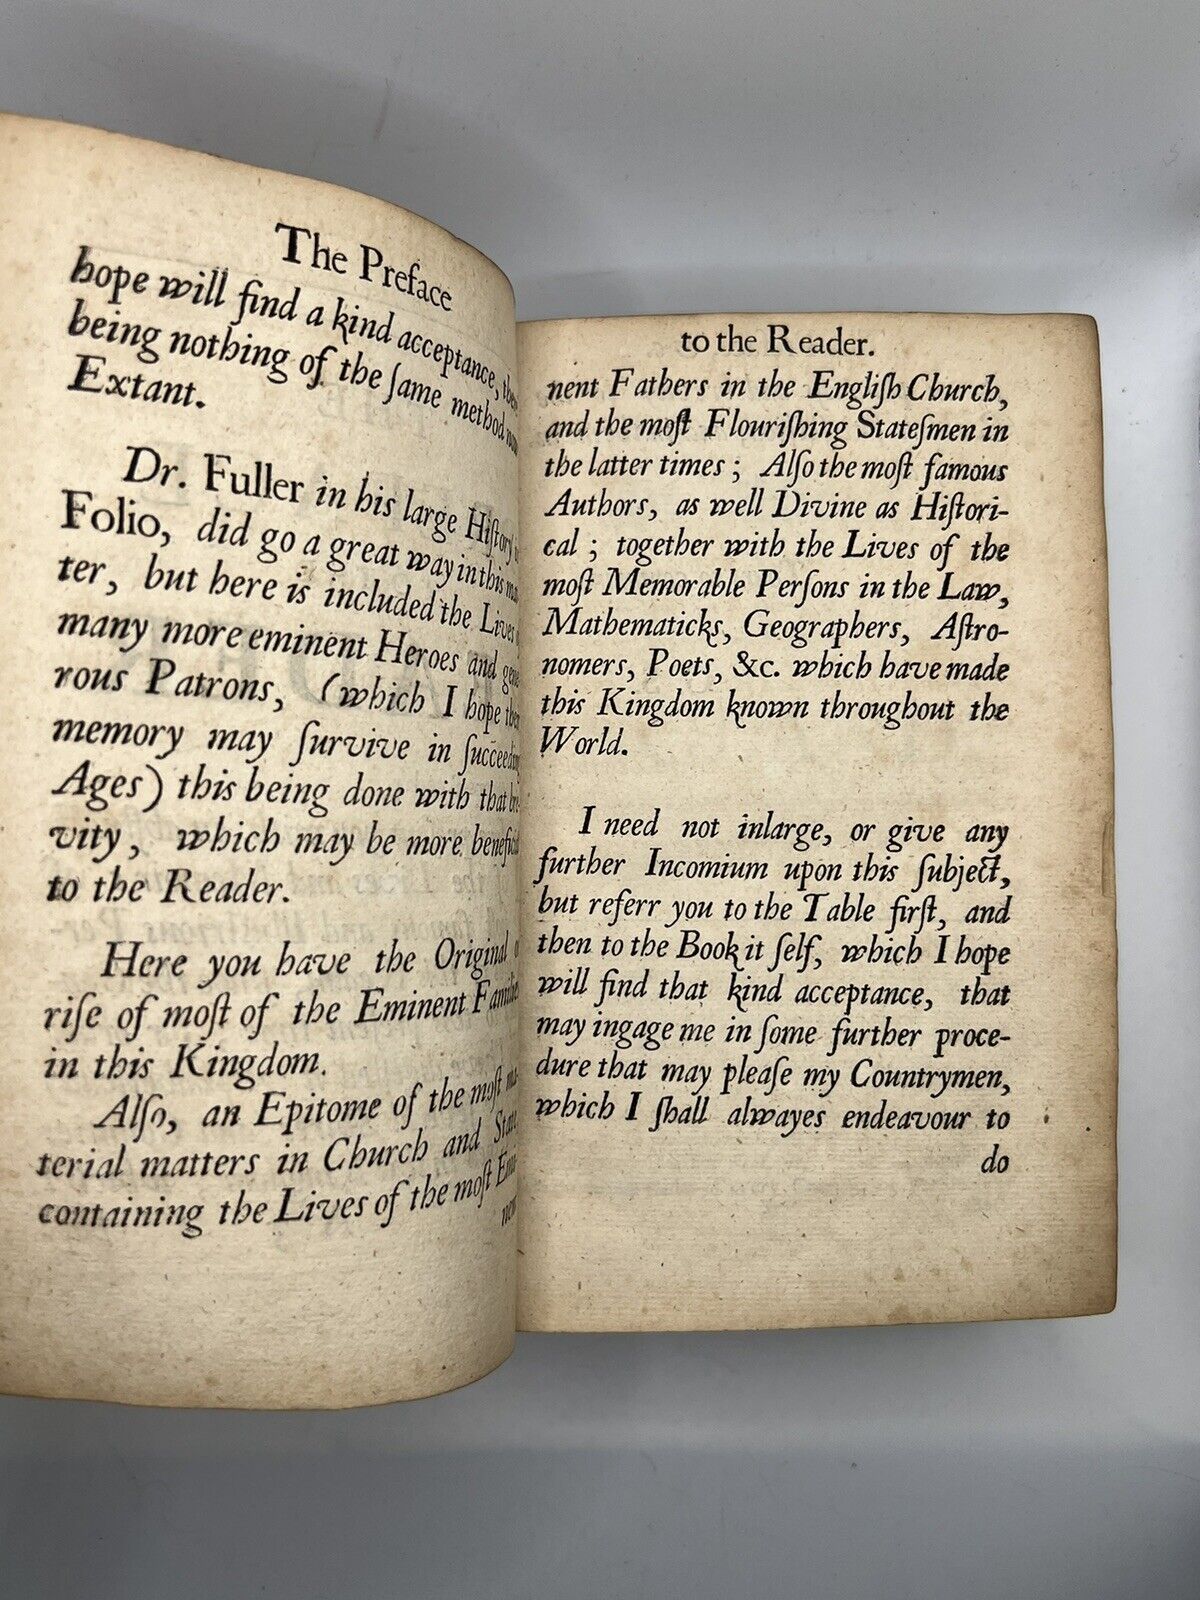 The Preface
hope will find a kind acceptance,
being nothing of the ſame method
Extant.
Dr. Fuller in his large Hiſtory
Folio, did go a great way in this
ter, but here is included the Lives
many more eminent Heroes and
rous Patrons, (which I hope
memory may ſurvive in
Ages) this being done with that
vity, which may be more
to the Reader.
Here you have the Original
riſe of moſt of the Eminent
in this Kingdom.
Alſo, an Epitome of the moſt
terial matters in Church and
containing the Lives of the moſt
to the Reader.
nent Fathers in the Engliſh Church,
and the moſt Flouriſhing Stateſmen in
the latter times; Alſo the moſt famous
Authors, as well Divine as Hiſtori-
cal; together with the Lives of the
moſt Memorable Perſons in the Law,
Mathematicks, Geographers, Aſtro-
nomers, Poets, &c. which have made
this Kingdom known throughout the
World.
I need not inlarge, or give any
further Incomium upon this ſubject,
but referr you to the Table firſt, and
then to the Book it ſelf, which I hope
will find that kind acceptance, that
may ingage me in ſome further proce-
dure that may pleaſe my Countrymen,
which I ſhall alwayes endeavour to
do